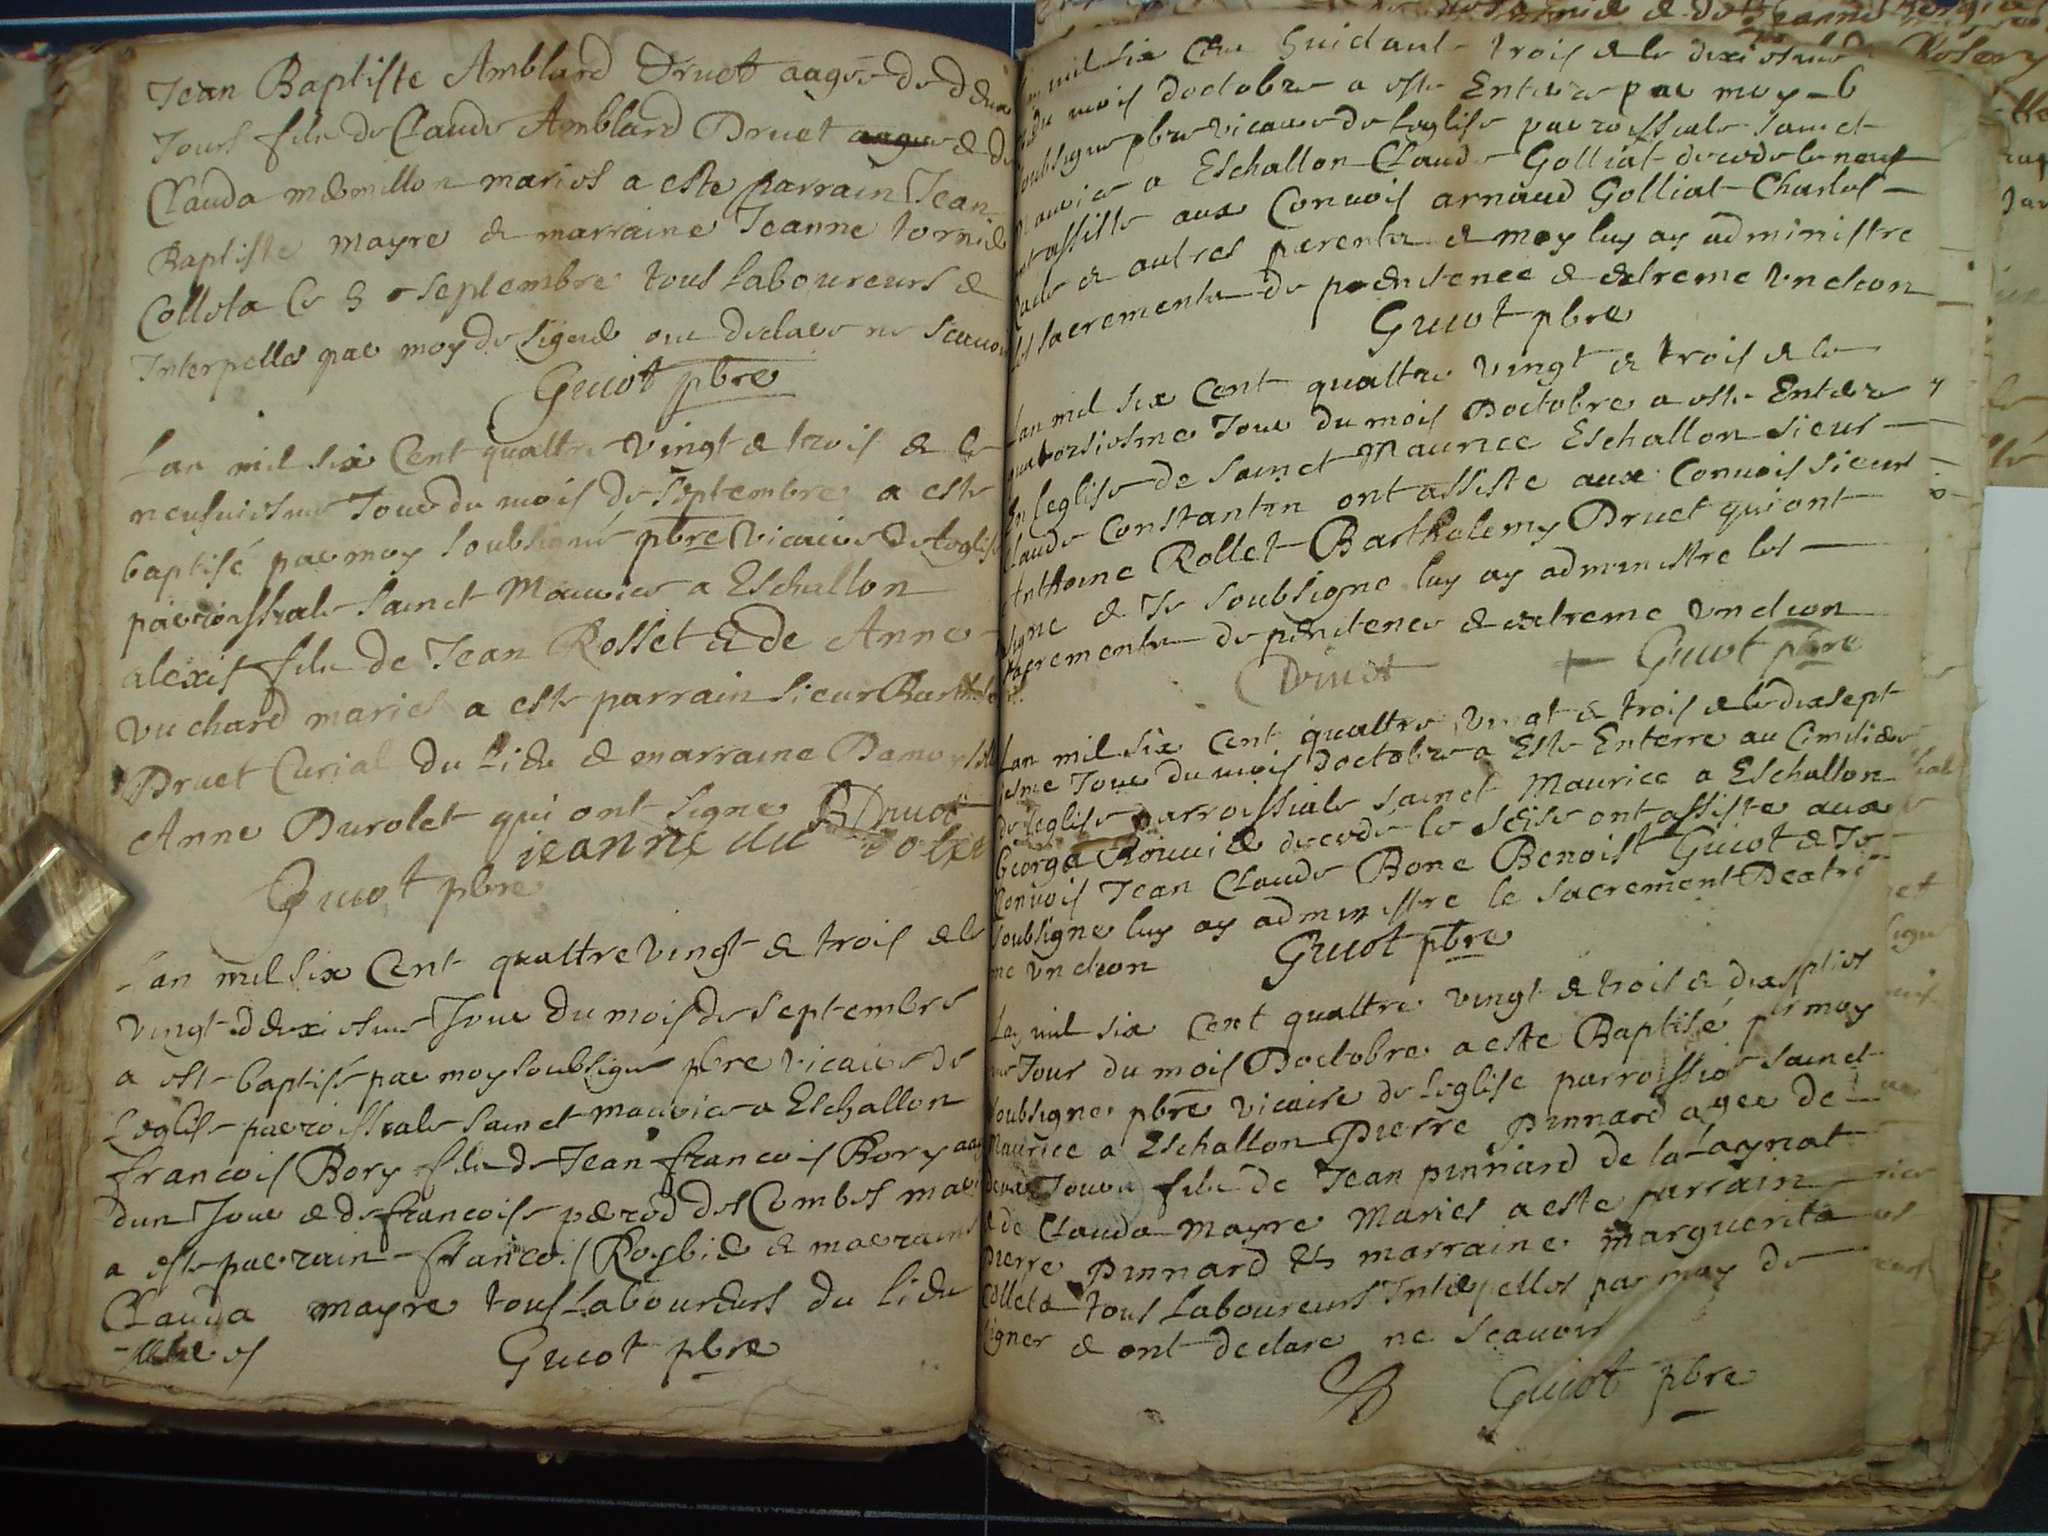 Jean Baptiste Amblard Druet aagée de deux
Jours fils de Claude Amblard Druet & de
Clauda mermillon maries a este parrain Jean
Baptiste mayre & marraine Jeanne tornié
Colleta septembre tous Laboureurs &
Interpelles par moy de signer ont declare ne scavoir
Guiot pbre
Lan mil six Cent quattre vingt & trois & le
neufuiesme Jour du mois de Septembre a este
baptisé par moy soubsigné pbre vicaire de leglise
parroissiale sainct Maurice a Eschallon
alexis fils de Jean Rosset & de Anne
vuchard maries a este parrain sieur Barthele
Druet Curial du lieu & marraine Damoyselle
Anne Durolet qui ont signe BDruet
jeanne du rolet
Guiot pbre
Lan mil six Cent quattre vingt & trois & le
vingt deuxiesme Jour du mois de septembre
a este baptisé par moy soubsigné pbre vicaire de
Leglise parroissiale sainct maurice a Eschallon
francois Bory fils de Jean francois Bory aagé
dun Jour & de francoise des Combes maries
a este parrain francois & marraine
Clauda mayre tous Laboureurs du lieu
Guiot pbre
mil six trois & le
du mois doctobre a este Enterre par moy
soubsigné pbre vicaire de leglise parroissiale sainct
maurice a Eschallon Claude Golliat decede le neuf
ont assisté aux Convois arnaud Golliat Charles
& autres parents & moy luy ay administre
les sacrements de penitence & extreme unction
Guiot pbre
Lan mil six Cent quattre vingt & trois & le
quatorsiesme Jour du mois Doctobre a este Enterre
En leglise de sainct Maurice Eschallon sieur
Claude Constantin ont assiste aux Convois sieur
Anthoine Rollet Barthelemy Druet qui ont
signe & Je soubsigne luy ay administre les
sacrements de penitence & extreme unction
Druet Guiot pbre
Lan mil six Cent quattre vingt & trois & le dixsept
iesme Jour du mois Doctobre a Este Enterre au Cimitiere
de leglise parroissiale sainct Maurice a Eschallon
George decede le seise ont assiste aux
Convois Jean Claude Bone Benoist Guiot & Je
soubsigne luy ay administre le sacrement Dextre
me unction Guiot pbre
Lan mil six Cent quattre vingt & trois & dixsepties
me Jour du mois Doctobre a este Baptisé par moy
soubsigne pbre vicaire de leglise parroissie sainct
Maurice a Eschallon Pierre Pinnard agee de
deux Jours fils de Jean pinnard de la Laynat
& de Clauda Mayre Maries a este parrain
Pierre Pinnard & marraine marguerita
Colleta tous Laboureurs Interpelles par moy de
signer & ont declare ne scavoir
Guiot pbre